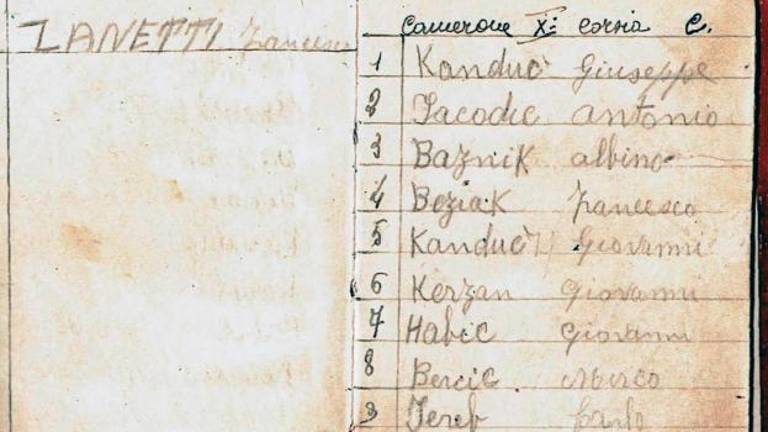 ZANETTI Francesco
Camerone X: corsia C.
1 Kanduc Giuseppe
2 Jacodic antonio
3 Baznik albino
4 Beziak francesco
5 Kanduc Giovanni
6 Kerzan Giovanni
7 Habic Giovanni
8 Bercic Mirco
9 Jereb